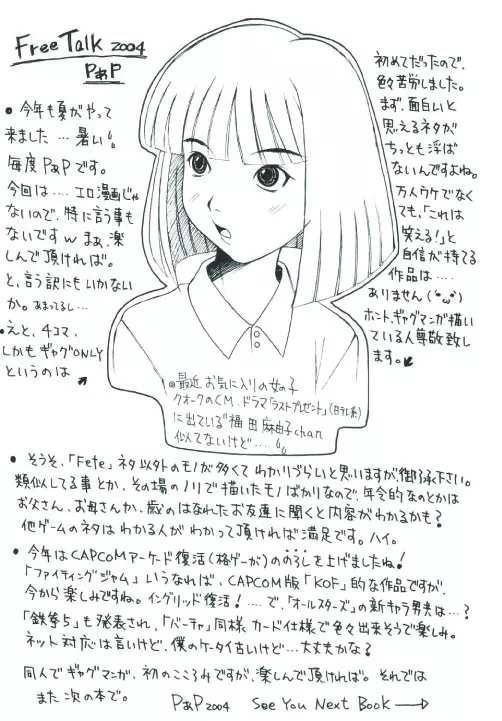 Free Talk 2004
PぁP
● 今年も夏がやって
来ました…暑い
毎度PぁPです。
今回は…. エロ漫画じゃ
ないので、特に言う事も
ないですw まぁ、楽
しんで頂ければ。
と、言う訳にもいかない
か。あまってるし…
●えと、4コマ、
しかもギャグONLY
というのは
初めてだったので、
色々苦労しました。
まず、面白いと
思えるネタが
ちっとも浮ば
ないんですよね。
万人ウケでなく
ても、「これは
笑える!」と
自信が持てる
作品は….
ありません(´・ω・`)
ホント、ギャグマンガ描い
ている人尊敬致し
ます。
◎最近お気に入りの女の子
クオークのCM、ドラマ「ラストプレゼント」(日テレ系)
に出ている"福田麻由子chan
似てないけど…..
● そうそ、「Fete」ネタ以外のモノが多くてわかりづらいと思いますが、御了承下さい。
類似してる事とか、その場のノリで描いたモノばかりなので、年令的なのとかは
お父さん、お母さんか、歳のはなれたお友達に聞くと内容がわかるかも?
他ゲームのネタはわかる人がわかって頂ければ満足です。ハイ。
● 今年はCAPCOMアーケード復活(格ゲーが)ののろしを上げましたね!
「ファイティングジャム」いうなれば、CAPCOM版「KOF」的な作品ですが、
今から楽しみですね。イングリッド復活!….で、「オールスターズ」の新キャラ男共は…?
「鉄拳5」も発表され、「バーチャ」同様カード仕様で色々出来そうで楽しみ。
ネット対応は言いけど、僕のケータイ古いけど…大丈夫かな?
同人でギャグマンガ、初のこころみですが、楽しんで頂ければ。それでは
また次の本で。 PぁP 2004 See You Next Book